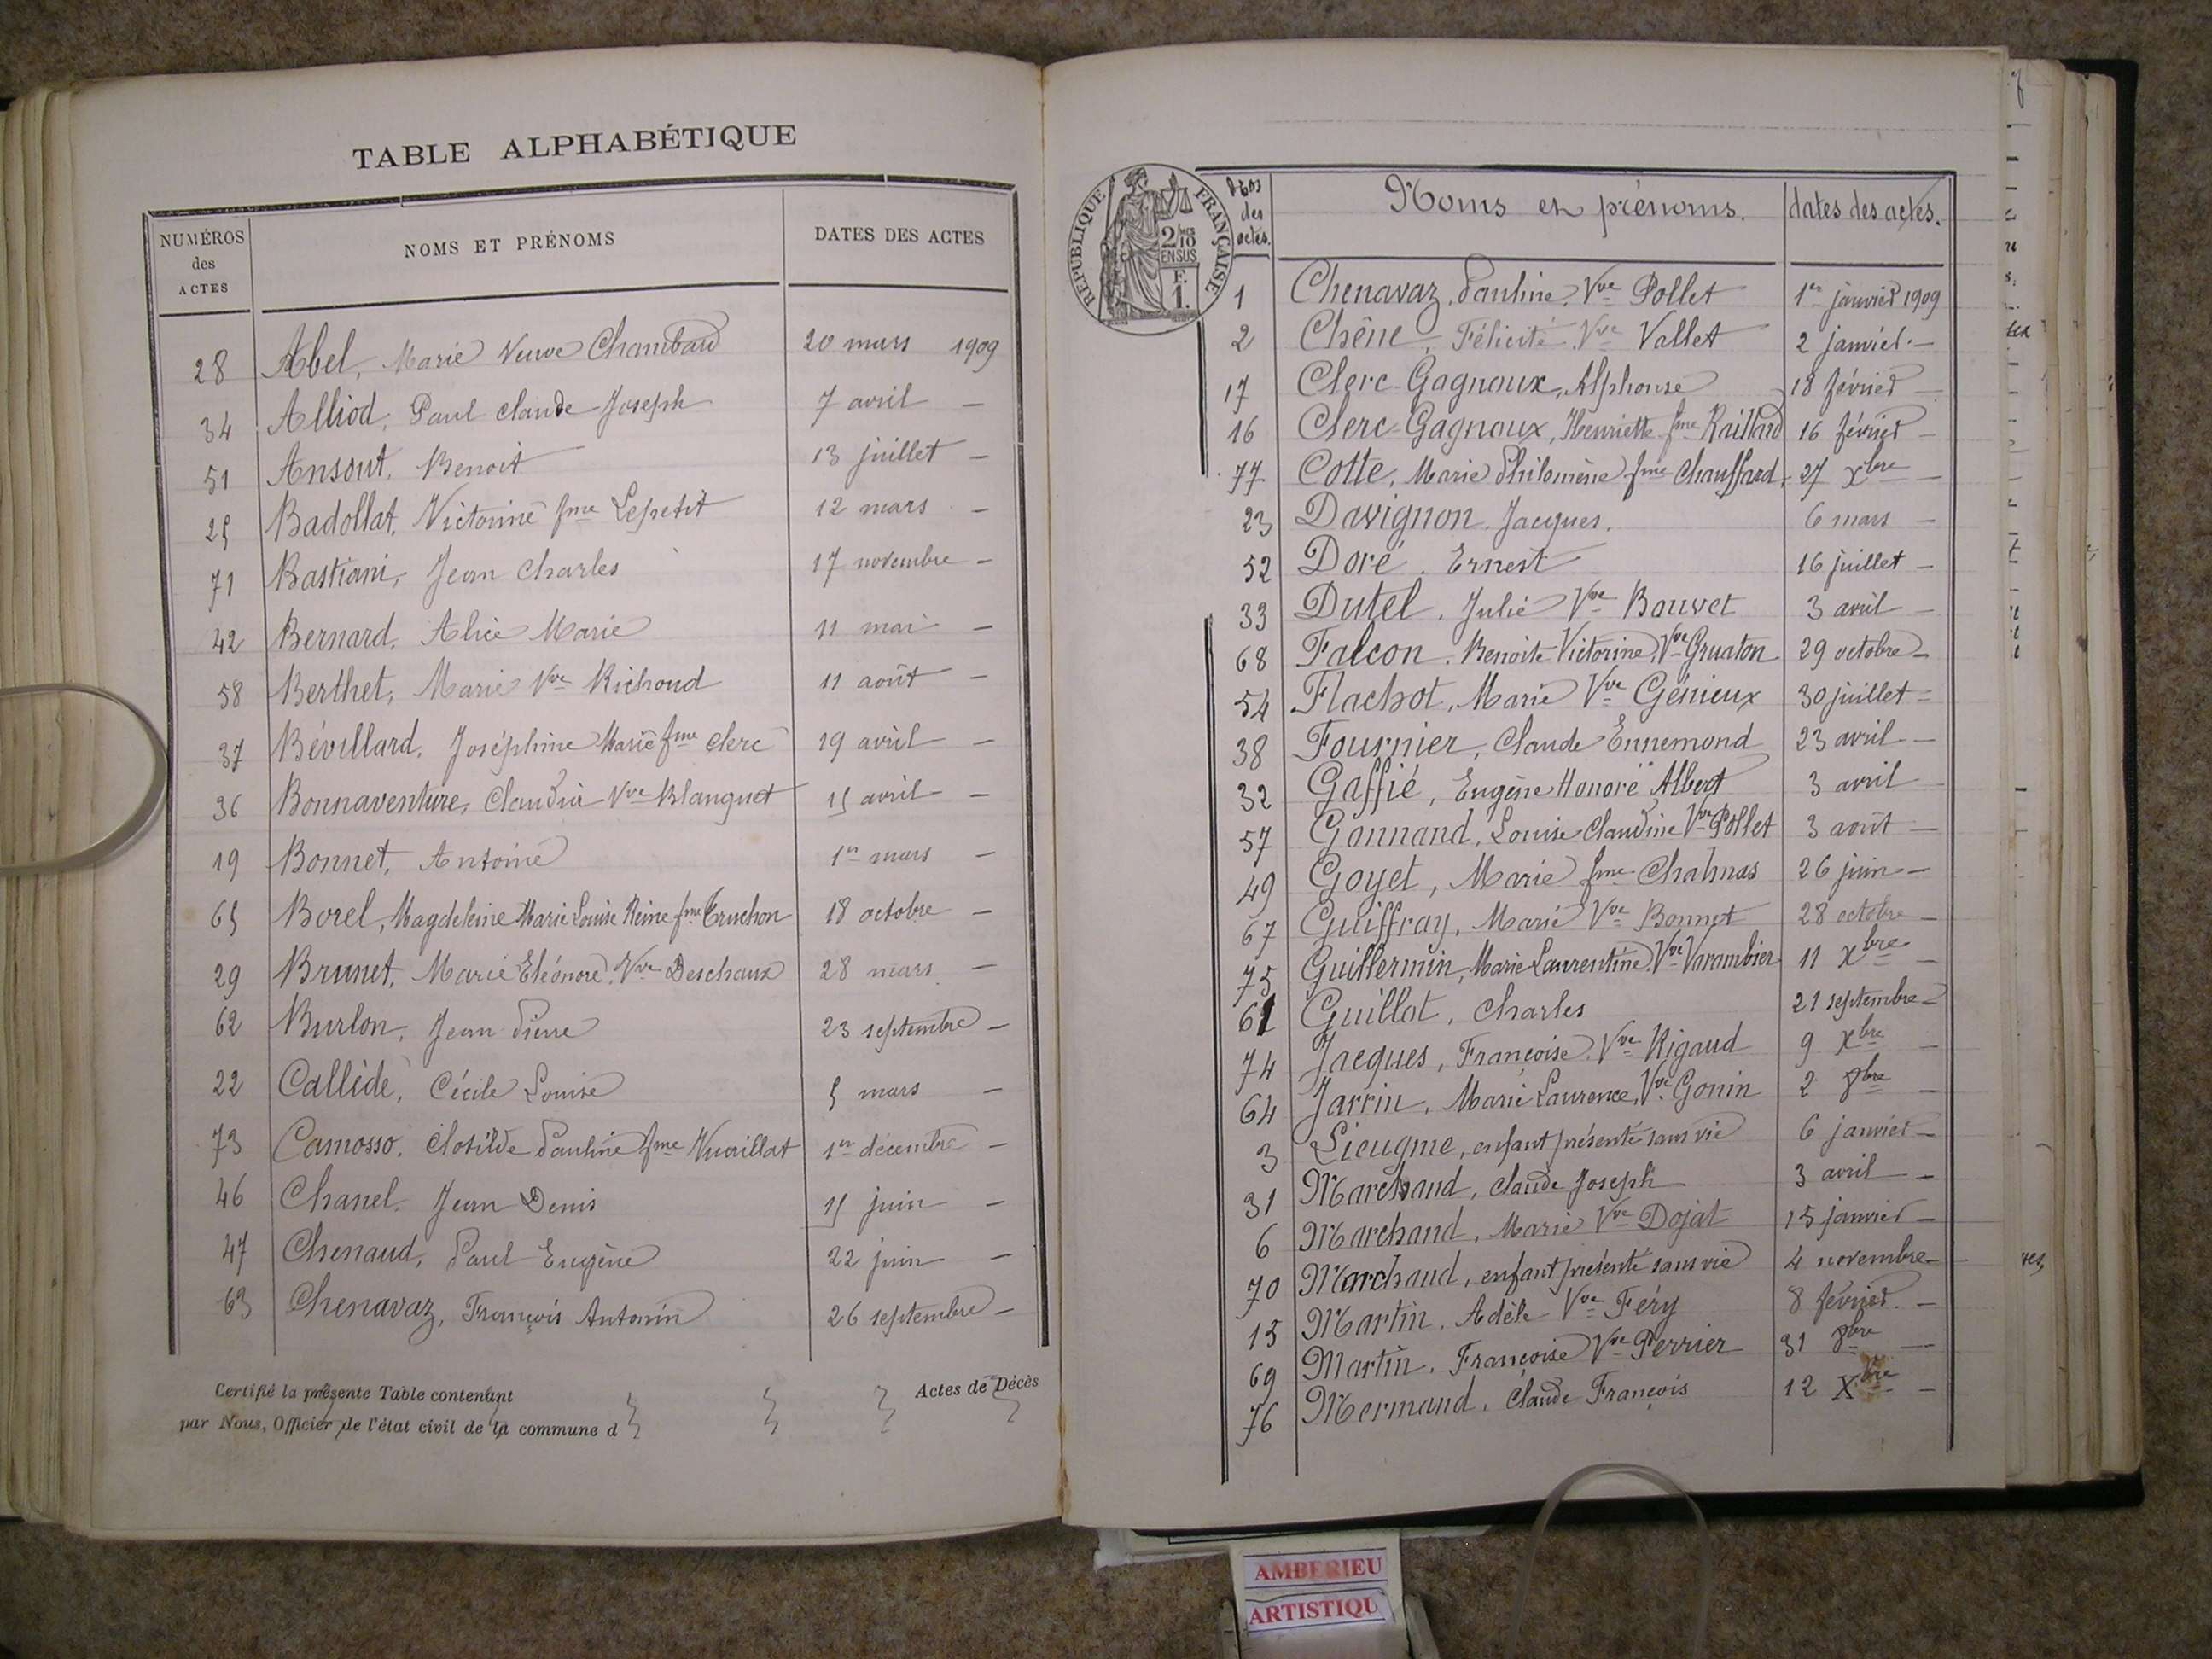 TABLE ALPHABÉTIQUE
NUMÉROS des ACTES NOMS ET PRÉNOMS DATES DES ACTES
28 Abel, Marie Veuve Chambard 20 mars 1909
34 Alliod, Paul Claude Joseph 7 avril —
51 Ansout, Benoit 13 juillet —
25 Badollat, Victorine fme Lepetit 12 mars —
71 Bastiani, Jean Charles 17 novembre —
42 Bernard, Alice Marie 11 mai —
58 Berthet, Marie Vve Richoud 11 août —
37 Bévillard, Joséphine Marie fme Clerc 19 avril —
36 Bonnaventure, Claudia Vve Blanguet 15 avril —
19 Bonnet, Antoine 1er mars —
65 Borel, Magdeleine Marie Louise Reine fme Truchon 18 octobre —
29 Brunet, Marie Eléonore Vve Deschaux 28 mars —
62 Burlon, Jean Pierre 23 septembre —
22 Callède, Cécile Louise 5 mars —
73 Camosso, Clotilde Pauline fme Vuaillat 1er décembre —
46 Chanel, Jean Denis 15 juin —
47 Chenaud, Paul Eugène 22 juin —
63 Chenavaz, François Antonin 26 septembre —
Certifié la présente Table contenant Actes de Décès
par Nous, Officier de l'état civil de la commune d
REPUBLIQUE FRANÇAISE
2/10
EN SUS
F.
1.
Nos des actes. Noms et prénoms. dates des actes.
1 Chenavaz, Pauline, Vve Pollet 1er janvier 1909
2 Chêne, Félicité Vve Vallet 2 janvier —
17 Clerc-Gagnoux, Alphonse 18 février —
16 Clerc-Gagnoux, Henriette fme Raillard 16 février —
77 Cotte, Marie Philomène fme Chauffard 27 Xbre —
23 Davignon, Jacques. 6 mars —
52 Doré, Ernest 16 juillet —
33 Dutel, Julie Vve Bouvet 3 avril —
68 Falcon, Benoite Victorine, Vve Gruaton 29 octobre —
54 Flachot, Marie Vve Génieux 30 juillet —
38 Fournier, Claude Ennemond 23 avril —
32 Gaffié, Eugène Honoré Albert 3 avril —
57 Gonnand, Louise Claudine Vve Pollet 3 août —
49 Goyet, Marie fme Chahnas 26 juin —
67 Guiffray, Marie Vve Bonnet 28 octobre —
75 Guillermin, Marie Laurentine, Vve Varambier 11 Xbre —
61 Guillot, Charles 21 septembre —
74 Jacques, Françoise, Vve Rigaud 9 Xbre —
64 Jarrin, Marie Laurence, Vve Gonin 2 8bre —
3 Lieugme, enfant présenté sans vie 6 janvier —
31 Marchand, Claude Joseph 3 avril —
6 Marchand, Marie Vve Dojat 15 janvier —
70 Marchand, enfant présenté sans vie 4 novembre —
15 Martin, Adèle Vve Féry 8 février —
69 Martin, Françoise Vve Perrier 31 8bre —
76 Mermand, Claude François 12 Xbre —
AMBERIEU
ARTISTIQU